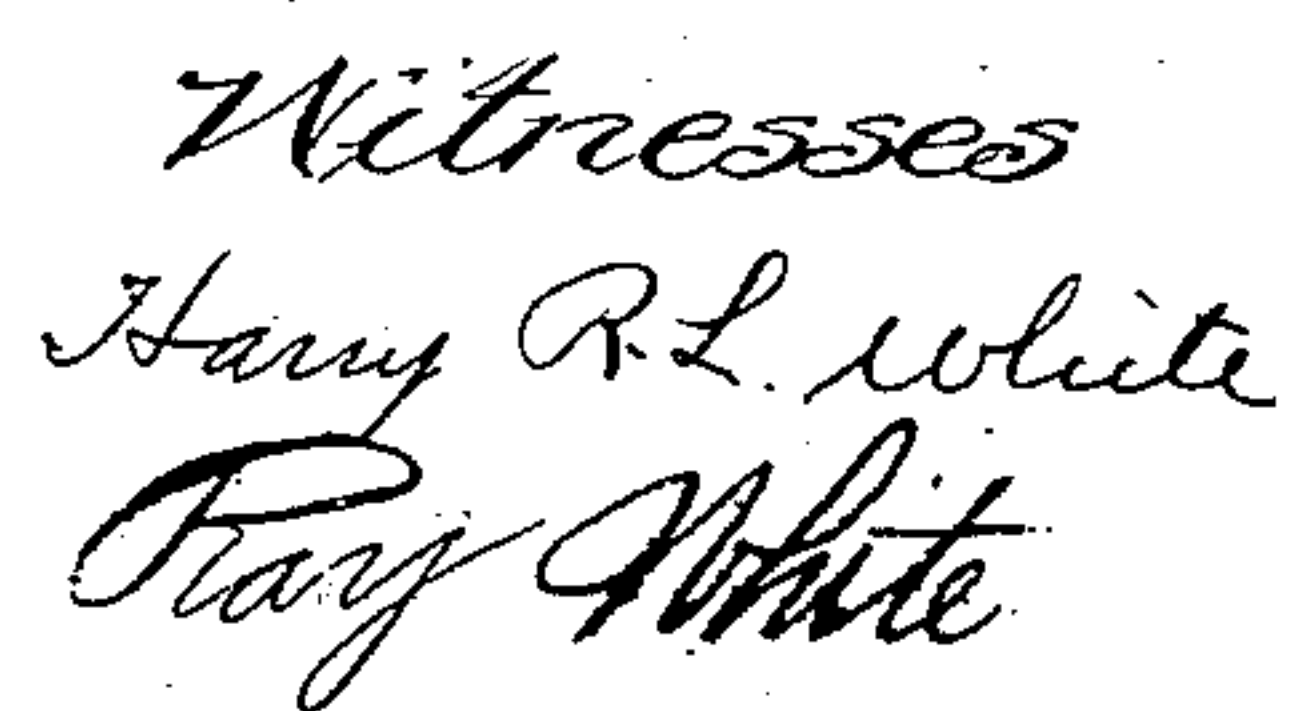 Witnesses
Harry R. L. White
Ray White